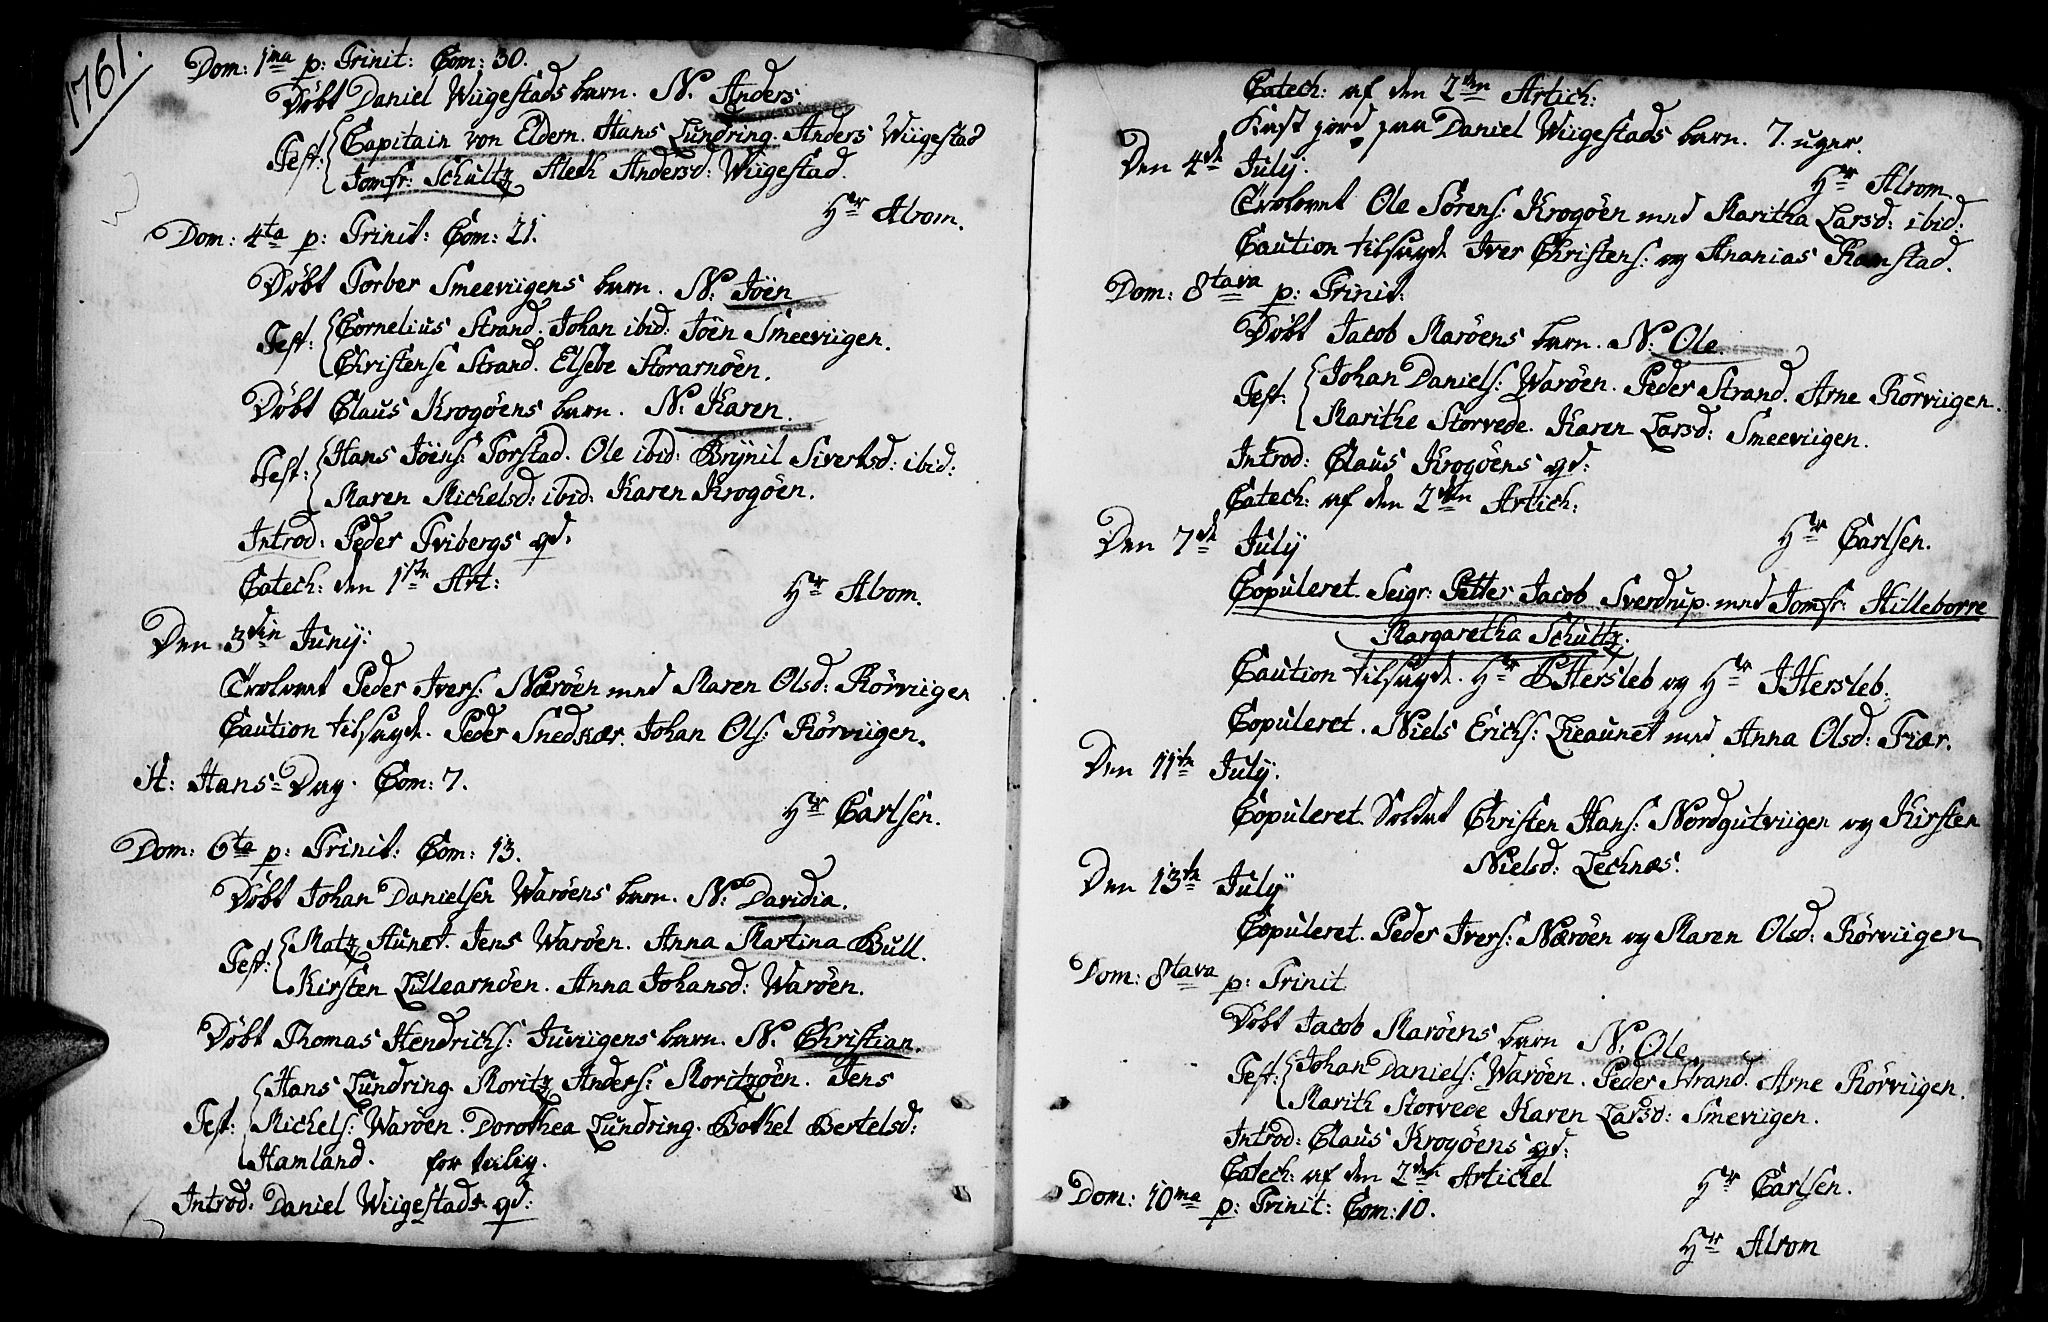 1761.
Dom: 1ma p: Trinit: Com: 30.
Döbt Daniel Wiigestads barn. N. Anders.
Test: Capitain von Eldern. Hans Lundring. Anders Wiigestad
Jomfr: Schultz Aleth Andersd: Wiigestad.
Hr Alrom.
Dom: 4ta p: Trinit: Com: 21.
Döbt Torber Smeeviigens barn. N: Jöen
Test: Cornelius Strand. Johan ibid: Jöen Smeeviigen.
Christense Strand. Elsebe Storarnöen.
Döbt Claus Krogöens barn. N: Karen.
Test: Hans Jöens: Torstad. Ole ibid: Brÿnil Sivertsd: ibid:
Maren Michelsd: ibid: Karen Krogöen.
Introd: Peder Tvibergs qd:
Catech: den 1ste Art:
Hr Alrom.
Den 3die Junÿ:
Trolovet Peder Ivers: Næröen med Maren Olsd: Rörviigen
Caution tilsagde. Peder Snedkær. Johan Ols: Rörviigen.
St: Hans-Dag. Com: 7.
Hr Carlsen.
Dom: 6ta p: Trinit: Com: 13.
Döbt Johan Danielsen Waröens barn. N: Davidia.
Test: Matz Aunet. Jens Waröen. Anna Martina Bull.
Kirsten Lillearnöen. Anna Johansd: Waröen.
Döbt Thomas Hendrichs: Juviigens barn. N. Christian.
Hans Lundring Moritz Anders: Moritzöen. Jens
Test: Michels: Waröen. Dorothea Lundring. Bothel Bertelsd:
Hamland. for tilig.
Introd: Daniel Wiigestads qd:
Catech: af den 2den Artich:
Kast jord paa Daniel Wiigestads barn. 7. uger.
Den 4de July:
Hr Alrom
Trolovet Ole Sörens: Krogöen med Maritha Larsd: ibid:
Caution tilsagde Iver Christens: og Ananias Ramstad.
Dom: 8tava p: Trinit:
Döbt Jacob Maröens barn. N: Ole.
Test: Johan Daniels: Waröen. Peder Strand. Arne Rörviigen.
Marithe Storvede. Karen Larsd: Smeeviigen.
Introd: Claus Krogöens qd:
Catech: af den 2den Artich:
Hr Carlsen.
Den 7de Julÿ
Copuleret. Seigr: Petter Jacob Sverdrup med Jomfr: Hilleborre
Margaretha Schultz.
Caution tilsagde. Hr PHersleb og Hr JHersleb.
Copuleret. Niels Erichs: Leaunet med Anna Olsd: Fiær.
Den 11te July.
Copuleret. Soldat Christen Hans: Nordgutviigen og Kirsten
Nielsd: Lechnæs.
Den 13te Julÿ
Copuleret. Peder Ivers: Næröen og Maren Olsd: Rörviigen
Dom: 8tava p: Trinit
Döbt Jacob Maröens barn N: Ole
Test: Johan Daniels: Waröen. Peder Strand. Arne Rörviigen.
Marith Storvede Karen Larsd: Smeviigen.
Introd: Claus Krogöens qd:
Catech: af den 2den Artichel
Hr Carlsen.
Dom: 10ma p: Trinit: Com: 10.
Hr Alrom